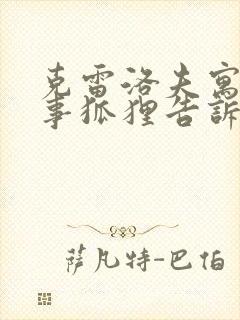 克雷洛夫寓
事狐狸告訴
萨凡特-巴伯